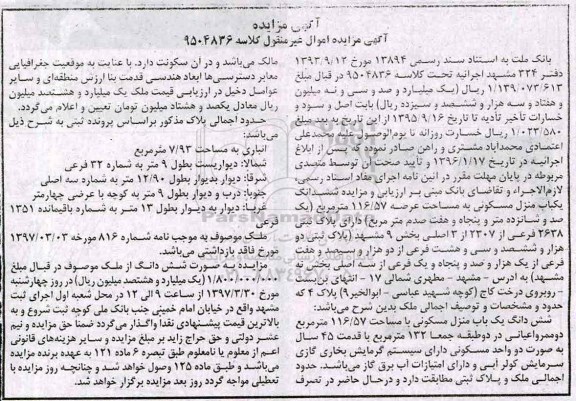 آگهی مزایده
آگهی مزایده اموال غیرمنقول کلاسه ۹۵۰۴۸۳۶
بانک ملت به استناد سند رسمی ۱۳۸۹۴ مورخ ۱۳۹۳/۹/۱۲
دفتر ۳۲۴ مشهد اجرائیه تحت کلاسه ۹۵۰۴۸۳۶ در قبال مبلغ
۱/۱۳۹/۰۷۳/۶۱۳ ریال (یک میلیارد و صد و سی و نه میلیون
و هفتاد و سه هزار و ششصد و سیزده ریال) بابت اصل و سود و
خسارات تأخیر تأدیه تا تاریخ ۱۳۹۵/۹/۱۶ از این تاریخ به بعد مبلغ
۱/۰۲۳/۵۸۰ ریال خسارت روزانه تا یوم‌الوصول علیه محمدعلی
اعتمادی محمدآباد مشتری و راهن صادر نموده که پس از ابلاغ
اجرائیه در تاریخ ۱۳۹۶/۱/۱۷ و تأیید صحت آن توسط متصدی
مربوطه در پایان مهلت مقرر در آئین نامه اجرای مفاد اسناد رسمی،
لازم‌الاجراء و تقاضای بانک مبنی بر ارزیابی و مزایده ششدانگ
یکباب منزل مسکونی به مساحت عرصه ۱۱۶/۵۷ مترمربع (یک
صد و شانزده متر و پنجاه و هفت صدم متر مربع) دارای پلاک ثبتی
۲۶۳۸ فرعی از ۲۳۰۷ از ۳ اصلی بخش ۹ مشهد (پلاک ثبتی دو
هزار و ششصد و سی و هشت فرعی از دو هزار و سیصد و هفت
فرعی از یک هزار و صد و پنجاه و یک فرعی از سه اصلی بخش نه
مشهد) به ادرس - مشهد - مطهری شمالی ۱۷ - انتهای بن‌بست
- روبروی درخت کاج (کوچه شهید عباسی - ابوالخیر۹) پلاک ۴ که
حدود و مشخصات و توصیف اجمالی ملک بدین شرح می‌باشد:
شش دانگ یک باب منزل مسکونی با مساحت ۱۱۶/۵۷ مترمربع
دوممرواعیانی در دوطبقه جمعا ۱۳۲ مترمربع با قدمت ۴۵ سال
به صورت دو واحد مسکونی دارای سیستم گرمایش بخاری گازی
سرمایش کولر آبی و دارای امتیازات آب برق گاز می‌باشد. حدود
اجمالی ملک و پلاک ثبتی مطابقت دارد و درحال حاضر در تصرف
مالک می‌باشد و در آن سکونت دارد. با عنایت به موقعیت جغرافیایی
معابر دسترسی‌ها ابعاد هندسی قدمت بنا ارزش منطقه‌ای و سایر
عوامل دخیل در ارزیابی قیمت ملک یک میلیارد و هشتصد میلیون
ریال معادل یکصد و هشتاد میلیون تومان تعیین و اعلام می‌گردد.
حدود اجمالی پلاک مذکور براساس پرونده ثبتی به شرح ذیل
می‌باشد:
انباری به مساحت ۷/۹۳ مترمربع
شمالا: دیواریست بطول ۹ متر به شماره ۳۲ فرعی
شرقا: دیوار بدیوار بطول ۱۲/۹۰ متر به شماره سه اصلی
جنوبا: درب و دیوار بطول ۹ متر به کوچه با عرضی چهارمتر
غربا: دیوار به دیوار بطول ۱۳ متر به شماره باقیمانده ۱۳۵۱
فرعی
ملک موصوف به موجب نامه شماره ۸۱۶ مورخه ۱۳۹۷/۰۳/۰۳
مورخ فاقد بازداشتی می‌باشد.
مزایده به صورت شش دانگ از ملک موصوف در قبال مبلغ
(یک میلیارد و هشتصد میلیون ریال) در روز چهارشنبه
مورخ ۱۳۹۷/۳/۳۰ از ساعت ۹ الی ۱۲ در محل شعبه اول اجرای ثبت
مشهد واقع در خیابان امام خمینی جنب بانک ملی کوچه ثبت شروع و به
بالاترین قیمت پیشنهادی نقدا واگذار می‌گردد ضمنا حق مزایده و نیم
عشر دولتی و حق حراج زاید بر مبلغ مزایده و سایر هزینه‌های قانونی
اعم از معلوم یا نامعلوم طبق تبصره ۶ ماده ۱۲۱ به عهده برنده مزایده
می‌باشد و طبق ماده ۱۲۵ وصول خواهد شد و چنانچه روز مزایده با
تعطیلی مواجه گردد روز بعد مزایده برگزار خواهد شد.